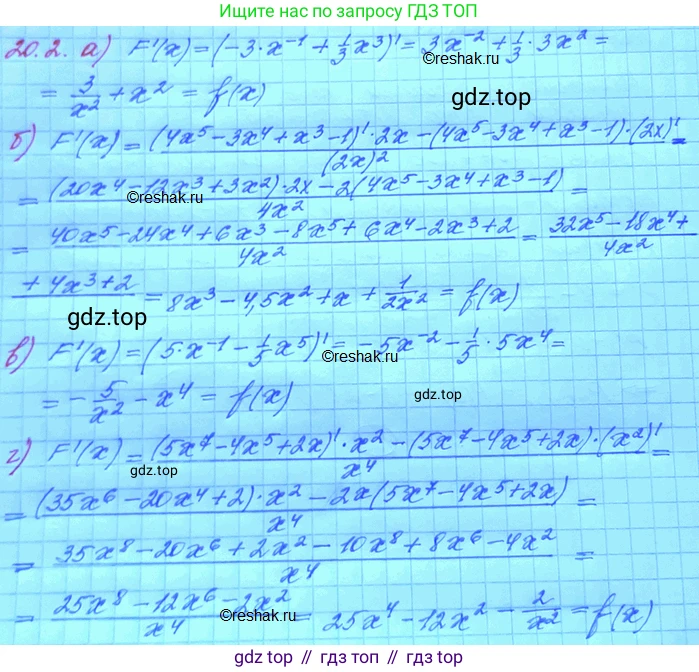 Ищите нас по запросу ГДЗ ТОП
20.2. а) F'(x) = (-3·x⁻¹ + 1/3 x³)' = 3x⁻² + 1/3 · 3x² =
= 3/x² + x² = f(x)
gdz.top
б) F'(x) = ((4x⁵ - 3x⁴ + x³ - 1)' · 2x - (4x⁵ - 3x⁴ + x³ - 1) · (2x)')/(2x)² =
©reshak.ru
= ((20x⁴ - 12x³ + 3x²) · 2x - 2(4x⁵ - 3x⁴ + x³ - 1))/4x² =
gdz.top
= (40x⁵ - 24x⁴ + 6x³ - 8x⁵ + 6x⁴ - 2x³ + 2)/4x² = (32x⁵ - 18x⁴ +
©reshak.ru
+ 4x³ + 2)/4x² = 8x³ - 4,5x² + x + 1/2x² = f(x)
gdz.top
в) F'(x) = (5·x⁻¹ - 1/5 x⁵)' = -5x⁻² - 1/5 · 5x⁴ =
©reshak.ru
= -5/x² - x⁴ = f(x)
gdz.top
г) F'(x) = ((5x⁷ - 4x⁵ + 2x)' · x² - (5x⁷ - 4x⁵ + 2x) · (x²)')/x⁴ =
gdz.top
©reshak.ru
= ((35x⁶ - 20x⁴ + 2) · x² - 2x(5x⁷ - 4x⁵ + 2x))/x⁴ =
= (35x⁸ - 20x⁶ + 2x² - 10x⁸ + 8x⁶ - 4x²)/x⁴ =
= (25x⁸ - 12x⁶ - 2x²)/x⁴ = 25x⁴ - 12x² - 2/x² = f(x)
gdz.top
©reshak.ru
gdz top // гдз топ // gdz.top